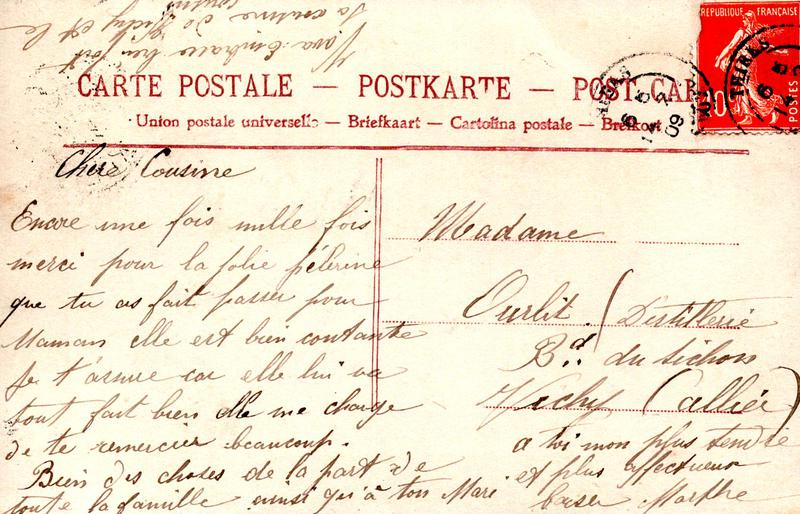 Cousine
la
CARTE POSTALE — POSTKARTE — POST CAR
Union postale universelle — Briefkaart — Cartolina postale — Brefkort
REPUBLIQUE FRANÇAISE
POSTES
THIERS
6 5
09
Chère Cousine
Encore une fois mille fois
merci pour la jolie pélerine
que tu as fait passer pour
Maman elle est bien contante
Je t'assure car elle lui va
tout fait bien elle me charge
de te remercier beaucoup.
Bien des choses de la part de
toute la famille ainsi qu'à ton Mari
Madame
Ourlit (Distillerie
Bd. du Sichon
Vichy (Allier)
a toi mon plus tendre
et plus affectueux
baiser Marthe